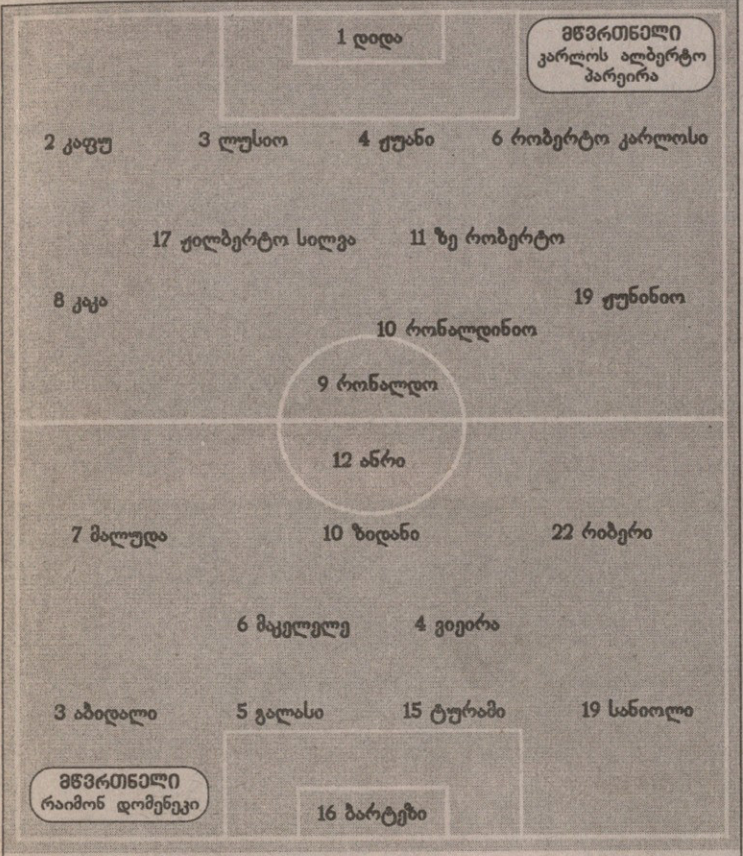 1 დიდა
მწვრთნელი
კარლოს ალბერტო
პარეირა
2 კაფუ 3 ლუსიო 4 ჟუანი 6 რობერტო კარლოსი
17 ჟილბერტო სილვა 11 ზე რობერტო
8 კაკა 19 ჟუნინიო
10 რონალდინიო
9 რონალდო
12 ანრი
7 მალუდა 10 ზიდანი 22 რიბერი
6 მაკელელე 4 ვიეირა
3 აბიდალი 5 გალასი 15 ტურამი 19 სანიოლი
მწვრთნელი
რაიმონ დომენეკი
16 ბარტეზი